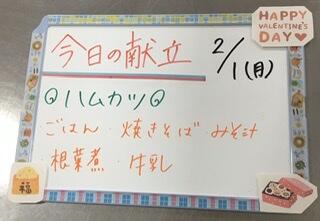 HAPPY
VALENTINE'S
DAY♥
今日の献立
2/1(月)
◎ハムカツ◎
ごはん・焼きそば・みそ汁
根菜煮・牛乳
福